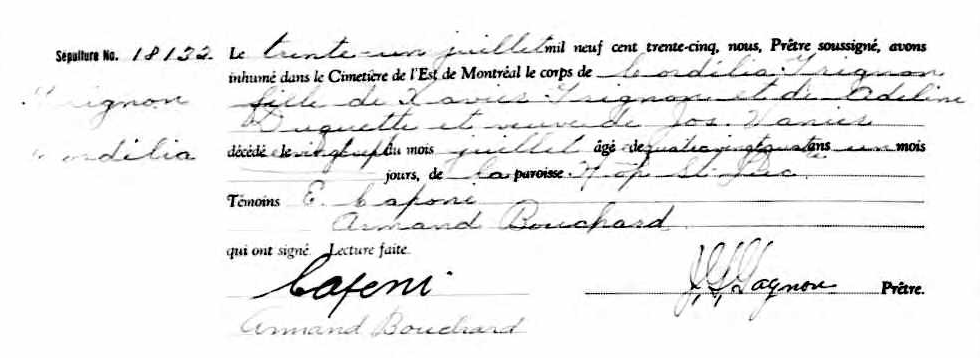 Sépulture No. 18132 Le trente-un juillet mil neuf cent trente-cinq, nous, Prêtre soussigné, avons
inhumé dans le Cimetière de l'Est de Montréal le corps de Cordélia Grignon
Grignon fille de Xavier Grignon et de Adeline
Duquette et veuve de Jos. Vanier
Cordélia décédé le vingt-sept du mois juillet âgé de quatre vingt quatre ans un mois
jours, de la paroisse Hôp St Luc.
Témoins E. Caponi
Armand Bouchard
qui ont signé Lecture faite.
J. Gagnon Prêtre.
Armand Bouchard